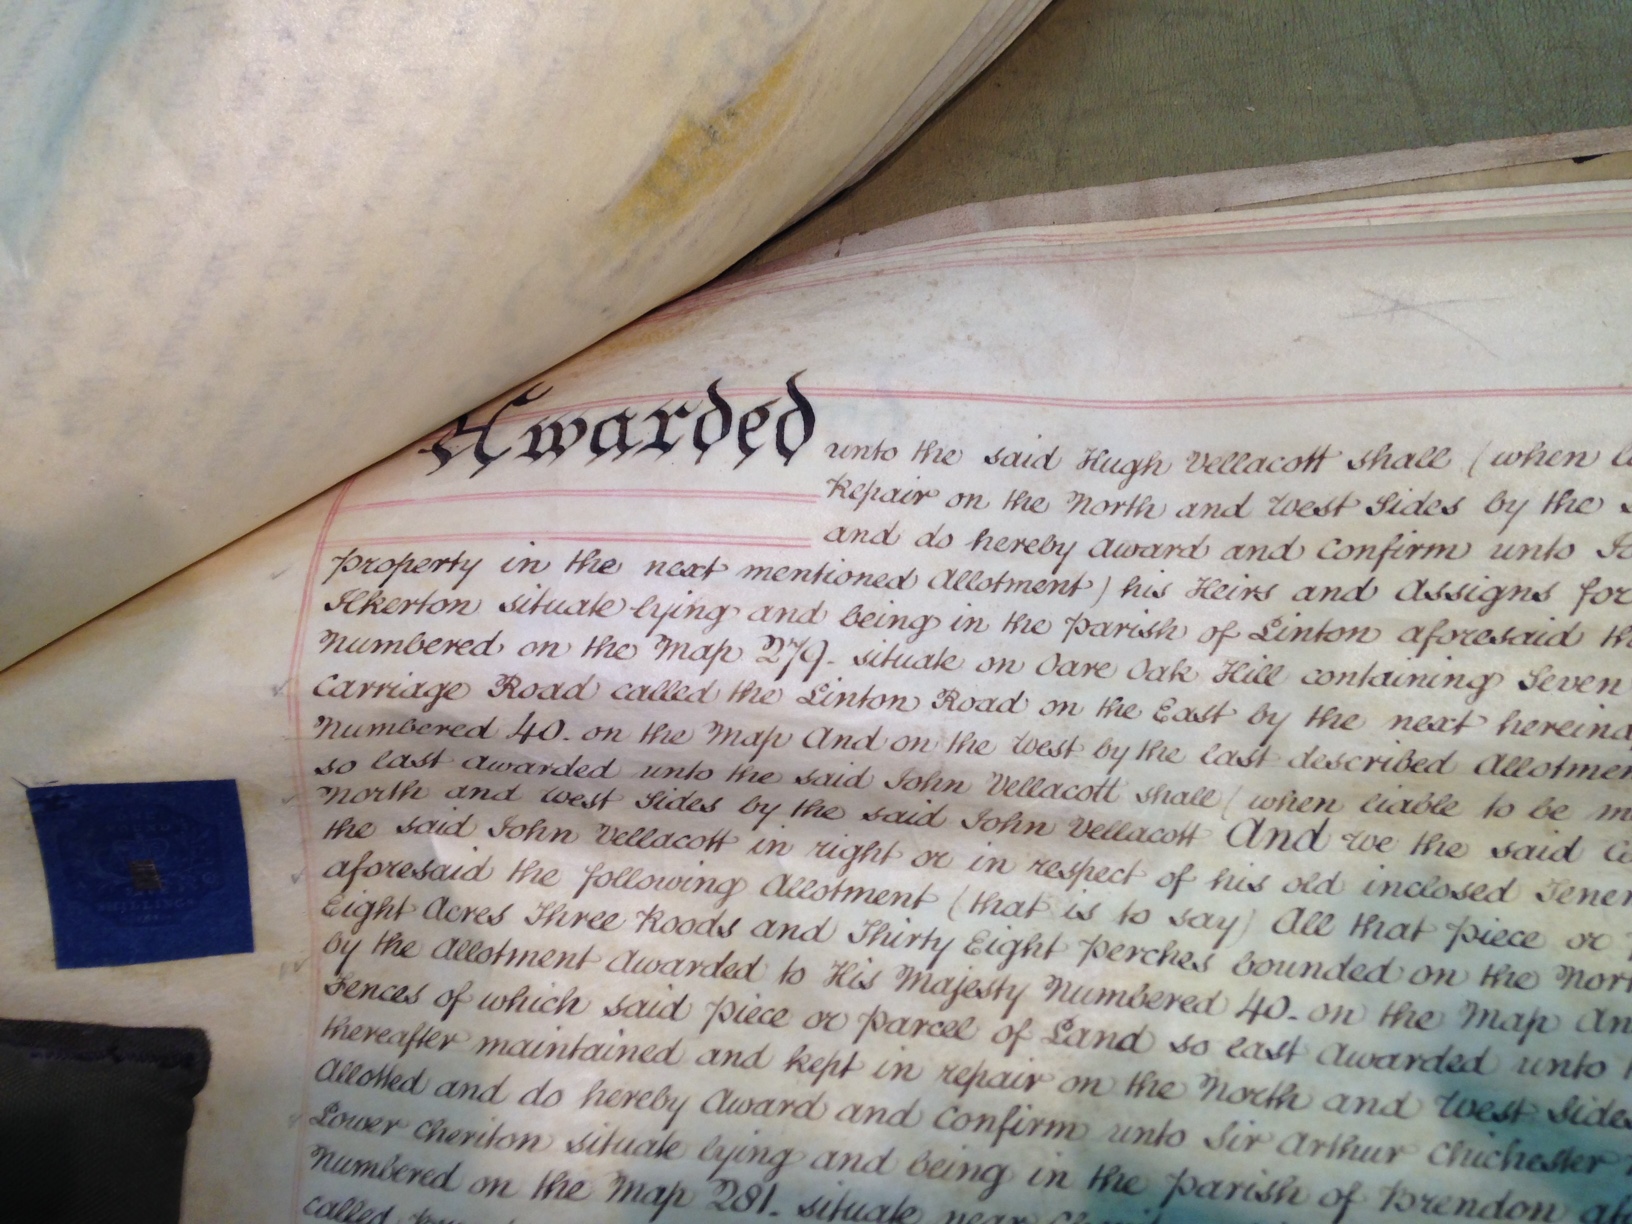 Awarded unto the said Hugh Vellacott shall (when
Repair on the North and West Sides by the
and do hereby Award and Confirm unto
property in the next mentioned Allotment) his Heirs and Assigns for
Ilkerton situate lying and being in the Parish of Linton aforesaid
Numbered on the Map 279. situate on Oare Oak Hill containing Seven
Carriage Road called the Linton Road on the East by the next
Numbered 40. on the Map And on the West by the last described
so last awarded unto the said John Vellacott shall (when liable to be
North and West Sides by the said John Vellacott And We the said
the said John Vellacott in right or in respect of his old inclosed
aforesaid the following Allotment (that is to say) All that Piece or
Eight Acres Three Roods and Thirty Eight Perches bounded on the
by the Allotment Awarded to His Majesty Numbered 40. on the Map
Fences of which said Piece or Parcel of Land so last Awarded unto
thereafter maintained and kept in repair on the North and West Sides
Allotted and do hereby Award and Confirm unto Sir Arthur Chichester
Lower Cheriton situate lying and being in the Parish of Brendon
Numbered on the Map 281. situate near
called